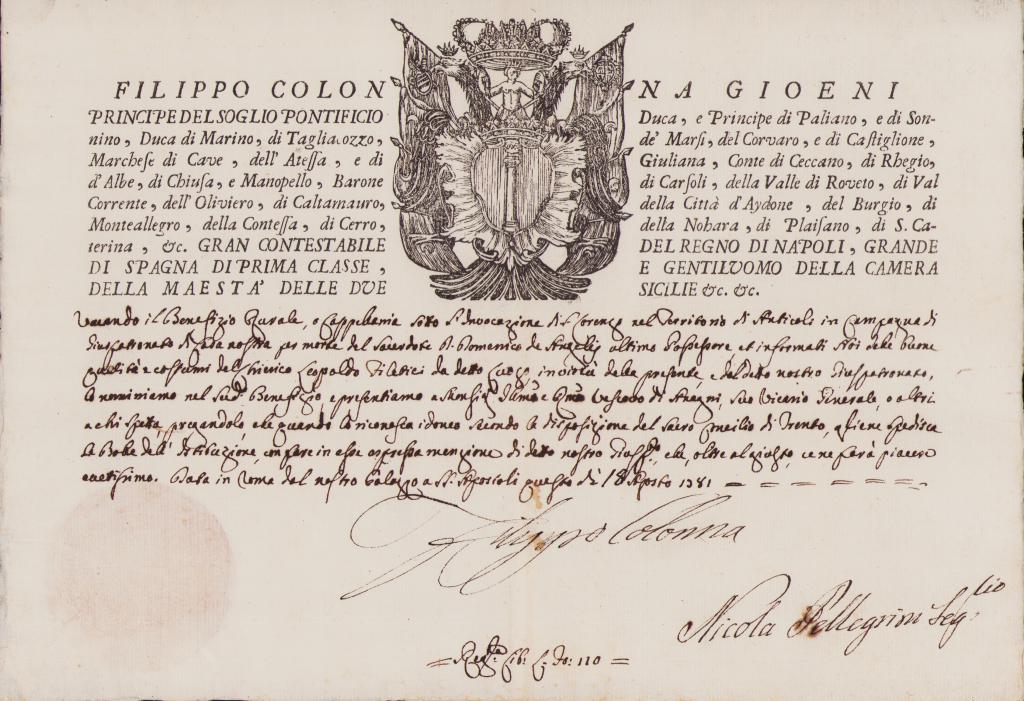 FILIPPO COLONNA GIOENI
PRINCIPE DEL SOGLIO PONTIFICIO Duca, e Principe di Paliano, e di Son-
nino, Duca di Marino, di Tagliacozzo, de' Marsi, del Corvaro, e di Castiglione,
Marchese di Cave, dell' Atessa, e di Giuliana, Conte di Ceccano, di Rhegio,
d'Albe, di Chiusa, e Manopello, Barone di Carsoli, della Valle di Roveto, di Val
Corrente, dell' Oliviero, di Caltamauro, della Città d'Aydone, del Burgio, di
Monteallegro, della Contessa, di Cerro, della Nohara, di Plaisano, di S. Ca-
terina, &c. GRAN CONTESTABILE DEL REGNO DI NAPOLI, GRANDE
DI SPAGNA DI PRIMA CLASSE, E GENTILUOMO DELLA CAMERA
DELLA MAESTA' DELLE DUE SICILIE &c. &c.
Vacando il Benefizio Rurale, o Cappellania sotto l'Invocazione di S. Lorenzo nel Territorio di Anticoli in Campagna di
Giuspatronato di Casa nostra per morte del Sacerdote D. Domenico de Angelis ultimo Possessore, et informati Noi delle buone
qualità e costumi del Chierico Leopoldo Filetici da detto Luogo in virtù della presente, e del detto nostro Giuspatronato,
lo nominiamo nel Sud.o Benefizio, e presentiamo a Monsig.r Illmo e Rmo Vescovo di Anagni, suo Vicario Generale, o altri
a chi spetta, pregandolo, che quando lo riconosca idoneo secondo la disposizione del Sacro Concilio di Trento, gli ene spedisca
le Bolle dell' Istituzione, con fare in esse espressa menzione di detto nostro Giusp.o, che, oltre al giusto, ce ne farà piacere
accettissimo. Data in Roma dal nostro Palazzo a SS. Apostoli questo dì 18 Agosto 1781
Filippo Colonna
Nicola Pellegrini Seg.rio
Reg.ta Lib. L. fo: 110